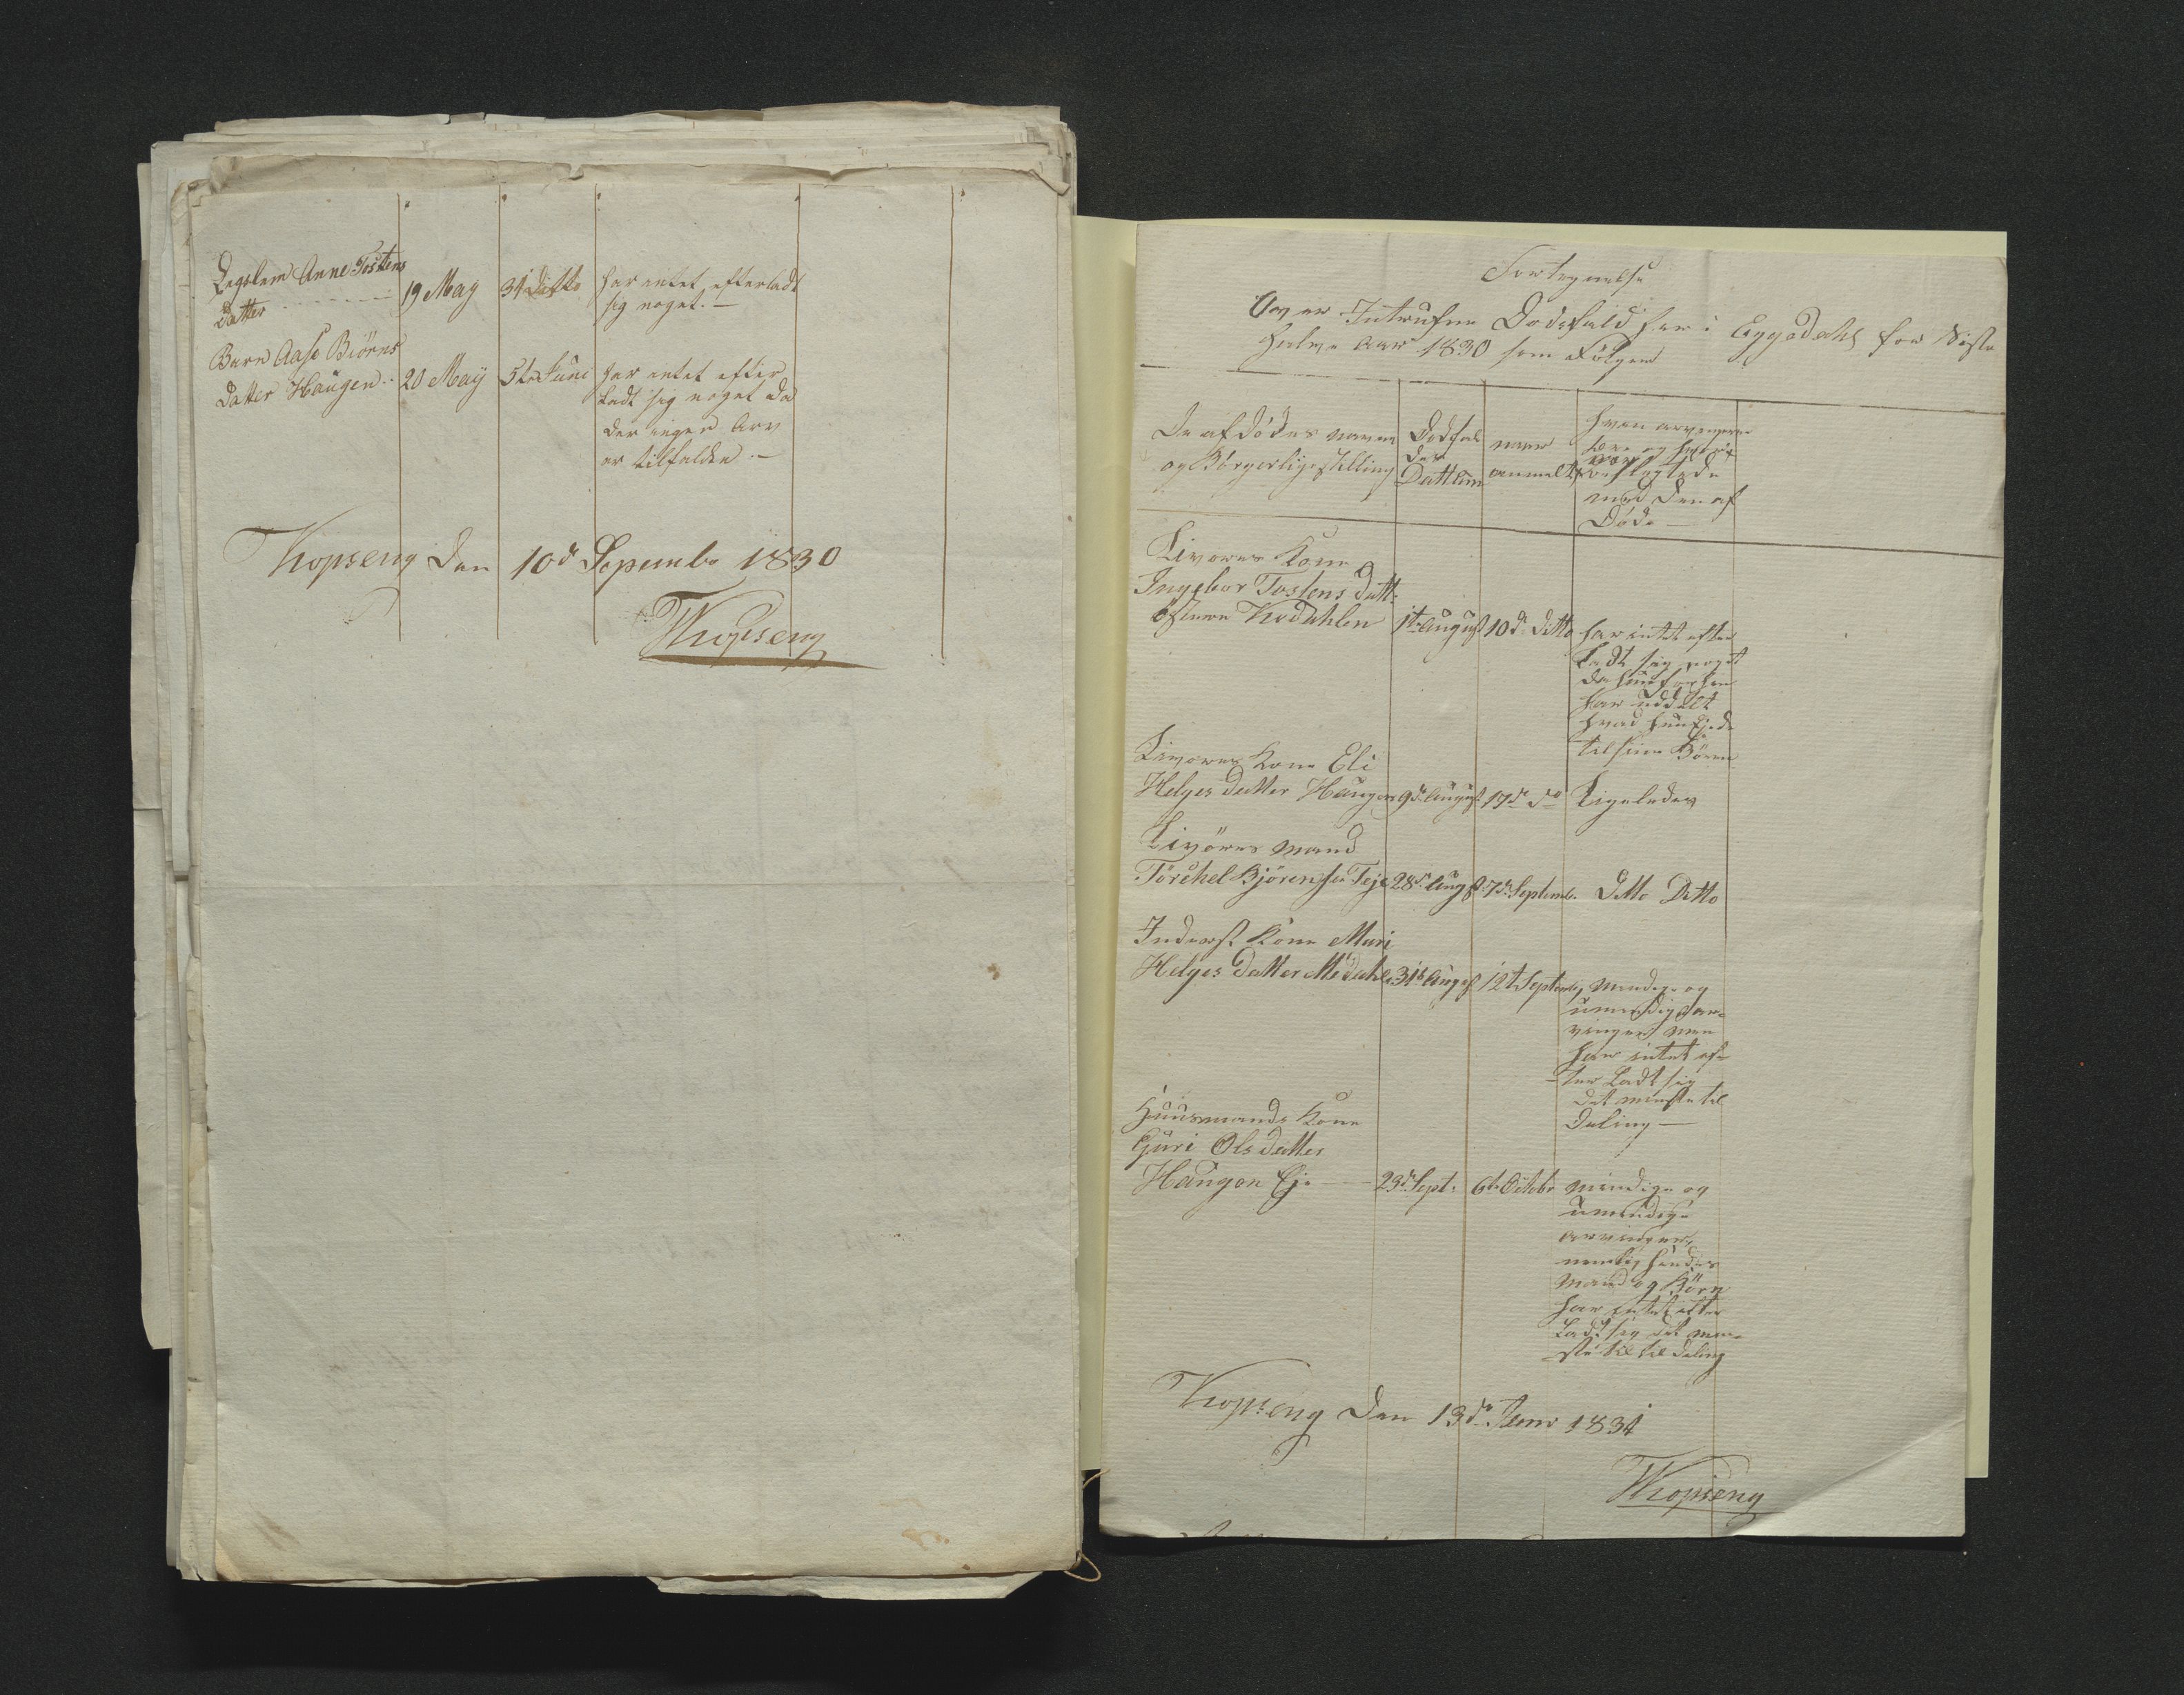 Legslem Anne Tostens
Datter 19 May 31 Ditto har intet efterladt
sig noget. —
Barn Aase Biörns
Datter Haugen 20 Maij 5te Juni har intet efter
ladt sig noget da
der ingen Arv
er tilfalden. —
Kopseng den 10de Sepembr 1830
TKopseng
Fortegnelse
Over Intrufne Dødsfald her i Eggedahl for Siste
halve Aar 1830 som Følger
De afdödes navne
og Borgerlige stilling
Dødsfal
der
Dattum
naar
anmeldt
hvem arvingerne
ere og hvor
nær
beslegtede
med den af
Døde —
Livøres Kone
Ingebor Tostens Datt:
østere Kodahlen 1te August 10de Ditto har intet efter
ladt sig noget
da hun forhen
har uddelt
hvad hun Ejede
til sine Börn
Livøres Kone Eli
Helges Datter Haugen 9de August 17de do Ligeledes
Livöres Mand
Torchel Bjørensen Teje 28de Augst 7de Septemb. Ditto Ditto
Inderst Kone Mari
Helges Datter Medahl 31te Augst 12t Septemb mundige og
umundige ar-
vinger men
har intet ef-
ter Ladt sig
det minste til
Deling —
Huusmands Kone
Guri Olsdatter
Haugen Eje — 23de Sept: 6te Octobr mindige og
umindige
arvinger,
nemlig hendes
Mand og Börn
har intet efter
Ladt sig det min-
ste til til deling
Kopseng den 13de Janr 1831
TKopseng